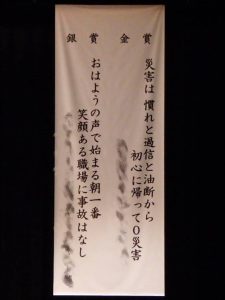 金賞
災害は 慣れと過信と油断から
初心に帰って０災害
銀賞
おはようの声で始まる朝一番
笑顔ある職場に事故はなし